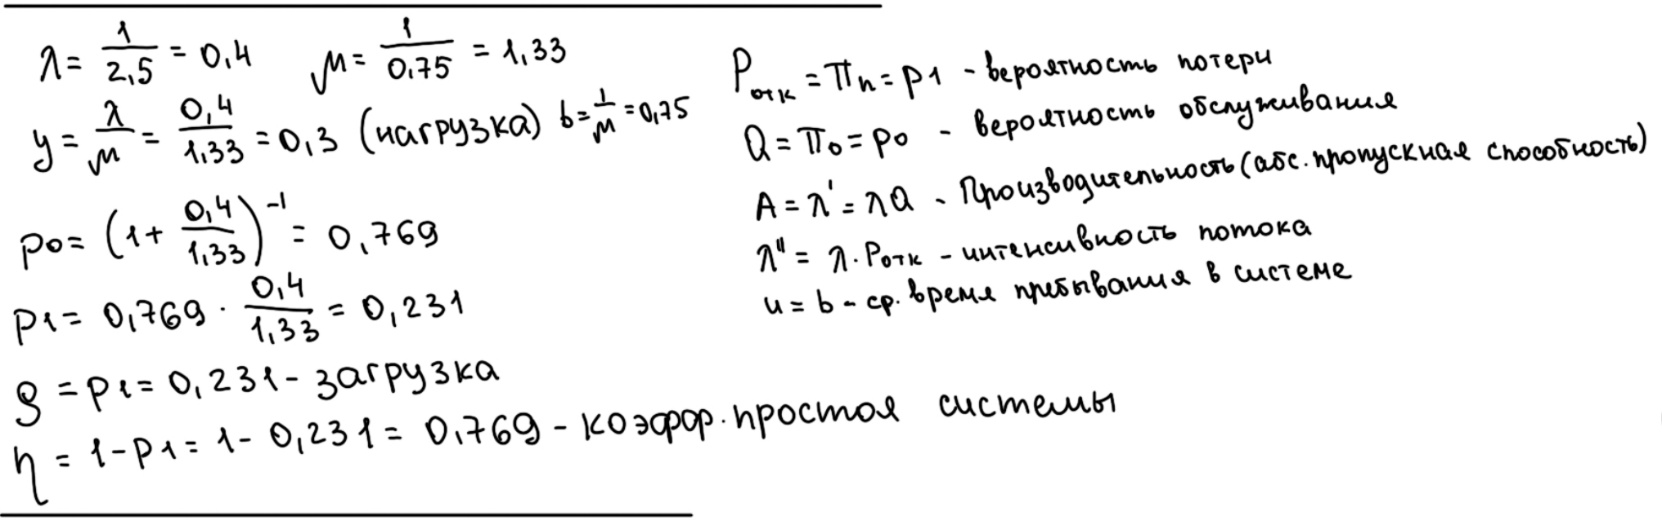 λ = 1/2,5 = 0,4   μ = 1/0,75 = 1,33
y = λ/μ = 0,4/1,33 = 0,3 (нагрузка) b = 1/μ = 0,75
p0 = (1 + 0,4/1,33)^-1 = 0,769
p1 = 0,769 · 0,4/1,33 = 0,231
ρ = p1 = 0,231 - загрузка
η = 1 - p1 = 1 - 0,231 = 0,769 - коэфф. простоя системы
Pотк = πn = p1 - вероятность потери
Q = π0 = p0 - вероятность обслуживания
A = λ' = λQ - Производительность (абс. пропускная способность)
λ'' = λ · Pотк - интенсивность потока
u = b - ср. время пребывания в системе